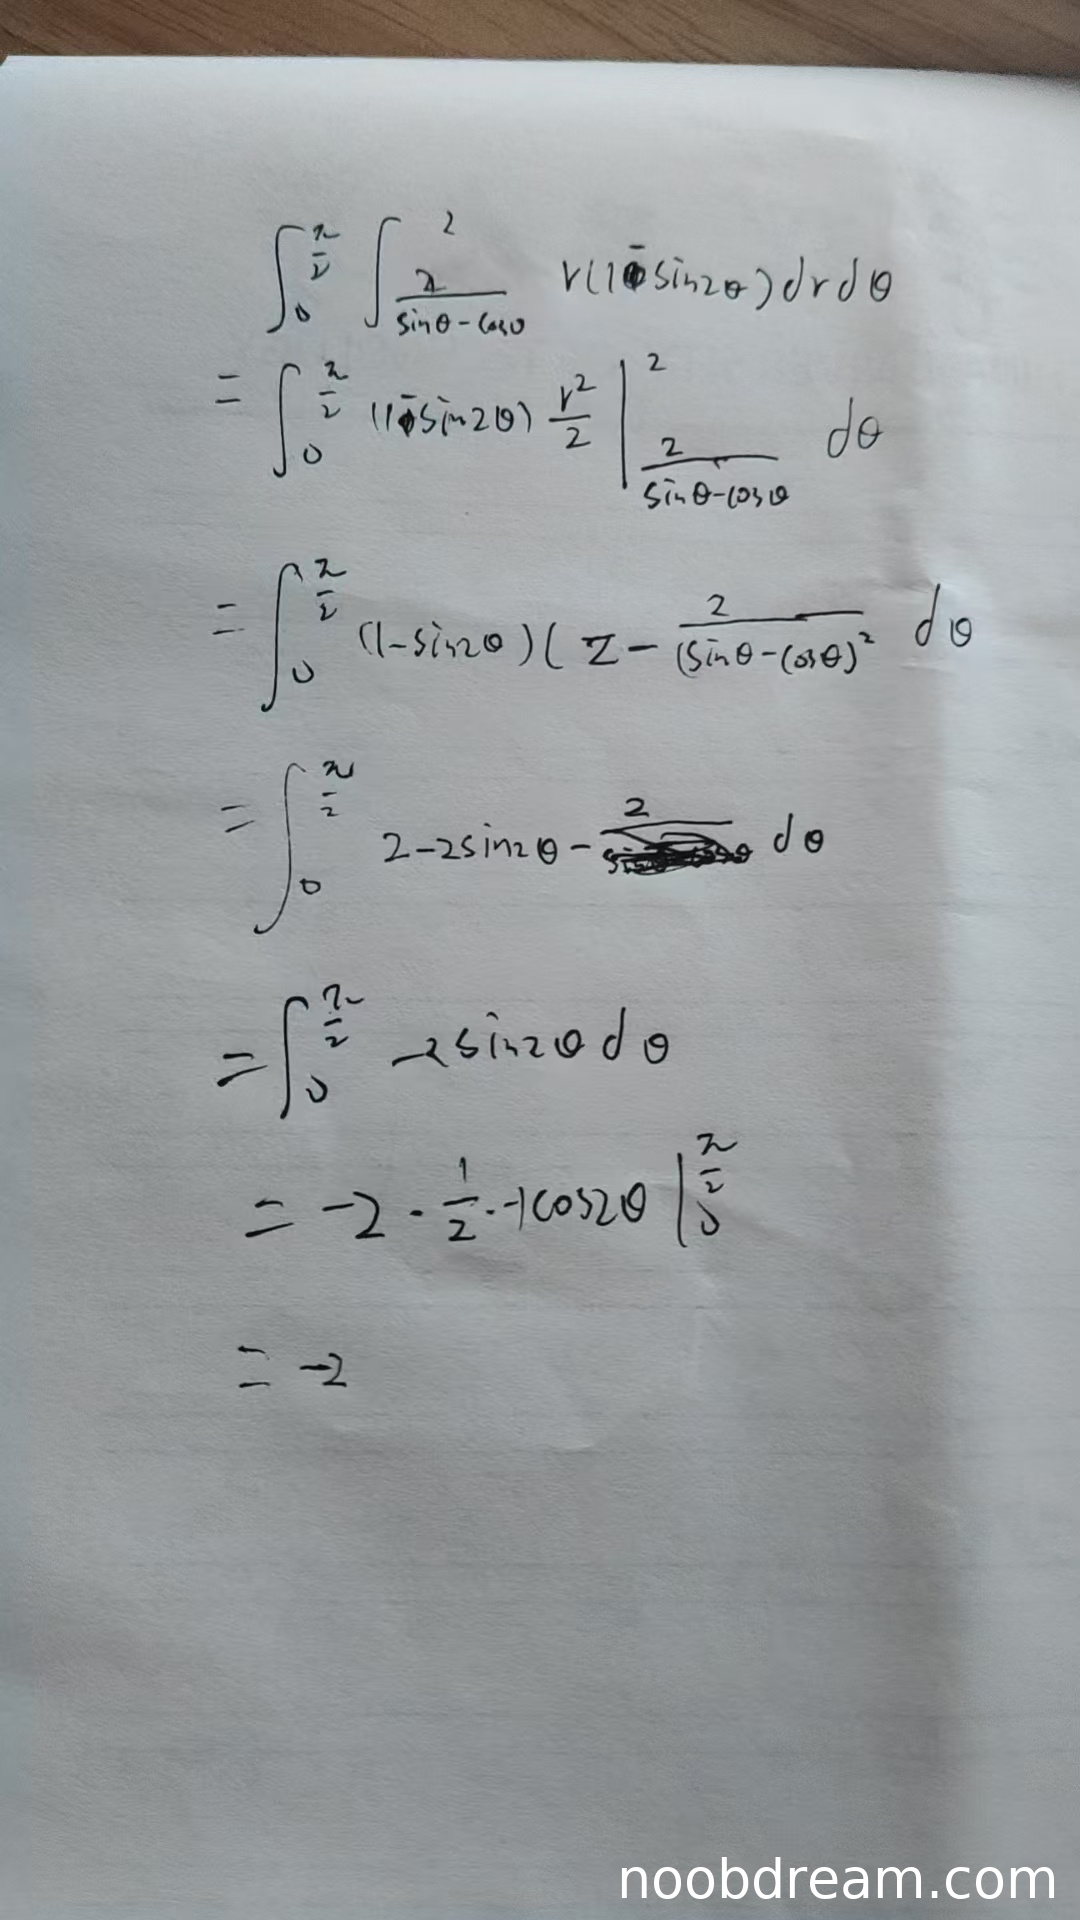 ∫₀^(π/2) ∫_(2/(sinθ-cosθ))^2 r(1-sin2θ)drdθ
= ∫₀^(π/2) (1-sin2θ) r²/2 |_(2/(sinθ-cosθ))^2 dθ
= ∫₀^(π/2) (1-sin2θ)(2 - 2/(sinθ-cosθ)² dθ
= ∫₀^(π/2) 2-2sin2θ - 2 dθ
= ∫₀^(π/2) -2sin2θ dθ
= -2 · 1/2 · -1cos2θ |₀^(π/2)
= -2
noobdream.com